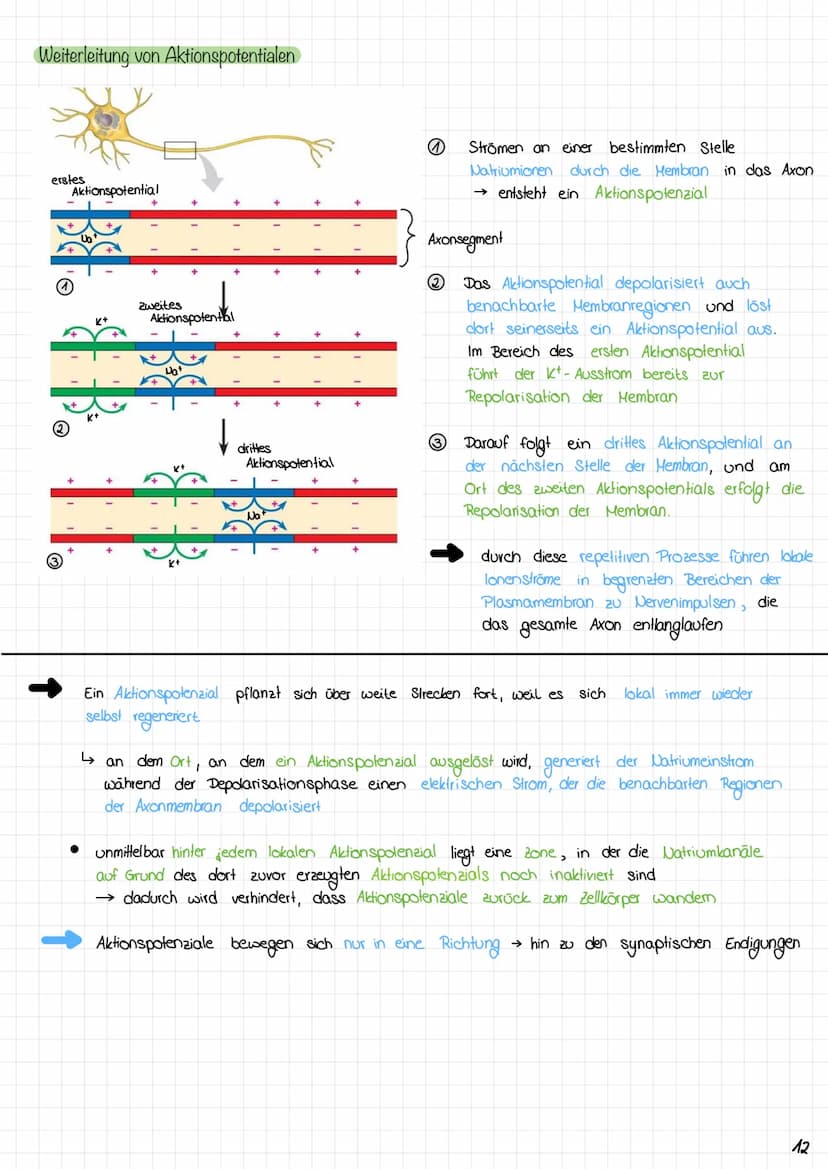 Weiterleitung von Aktionspotentialen
erstes
Aktionspotential
- - + + + + + +
+ + - - - - - -
Na+
+ + - - - - - -
- - + + + + + +
①
zweites
Aktionspotential
K+
+ + - - + + + +
- - + + - - - -
Na+
- - + + - - - -
+ + - - + + + +
K+
②
drittes
Aktionspotential
K+
+ + + + - - + +
- - - - + + - -
Na+
- - - - + + - -
+ + + + - - + +
K+
③
① Strömen an einer bestimmten Stelle
Natriumionen durch die Membran in das Axon
→ entsteht ein Aktionspotenzial
Axonsegment
② Das Aktionspotential depolarisiert auch
benachbarte Membranregionen und löst
dort seinerseits ein Aktionspotential aus.
Im Bereich des ersten Aktionspotential
führt der K+-Ausstrom bereits zur
Repolarisation der Membran
③ Darauf folgt ein drittes Aktionspotential an
der nächsten Stelle der Membran, und am
Ort des zweiten Aktionspotentials erfolgt die
Repolarisation der Membran.
➔ durch diese repetitiven Prozesse führen lokale
Ionenströme in begrenzten Bereichen der
Plasmamembran zu Nervenimpulsen, die
das gesamte Axon entlanglaufen
➔ Ein Aktionspotenzial pflanzt sich über weite Strecken fort, weil es sich lokal immer wieder
selbst regeneriert
↳ an dem Ort, an dem ein Aktionspotenzial ausgelöst wird, generiert der Natriumeinstrom
während der Depolarisationsphase einen elektrischen Strom, der die benachbarten Regionen
der Axonmembran depolarisiert
• unmittelbar hinter jedem lokalen Aktionspotenzial liegt eine Zone, in der die Natriumkanäle
auf Grund des dort zuvor erzeugten Aktionspotenzials noch inaktiviert sind
→ dadurch wird verhindert, dass Aktionspotenziale zurück zum Zellkörper wandern
➔ Aktionspotenziale bewegen sich nur in eine Richtung → hin zu den synaptischen Endigungen
12